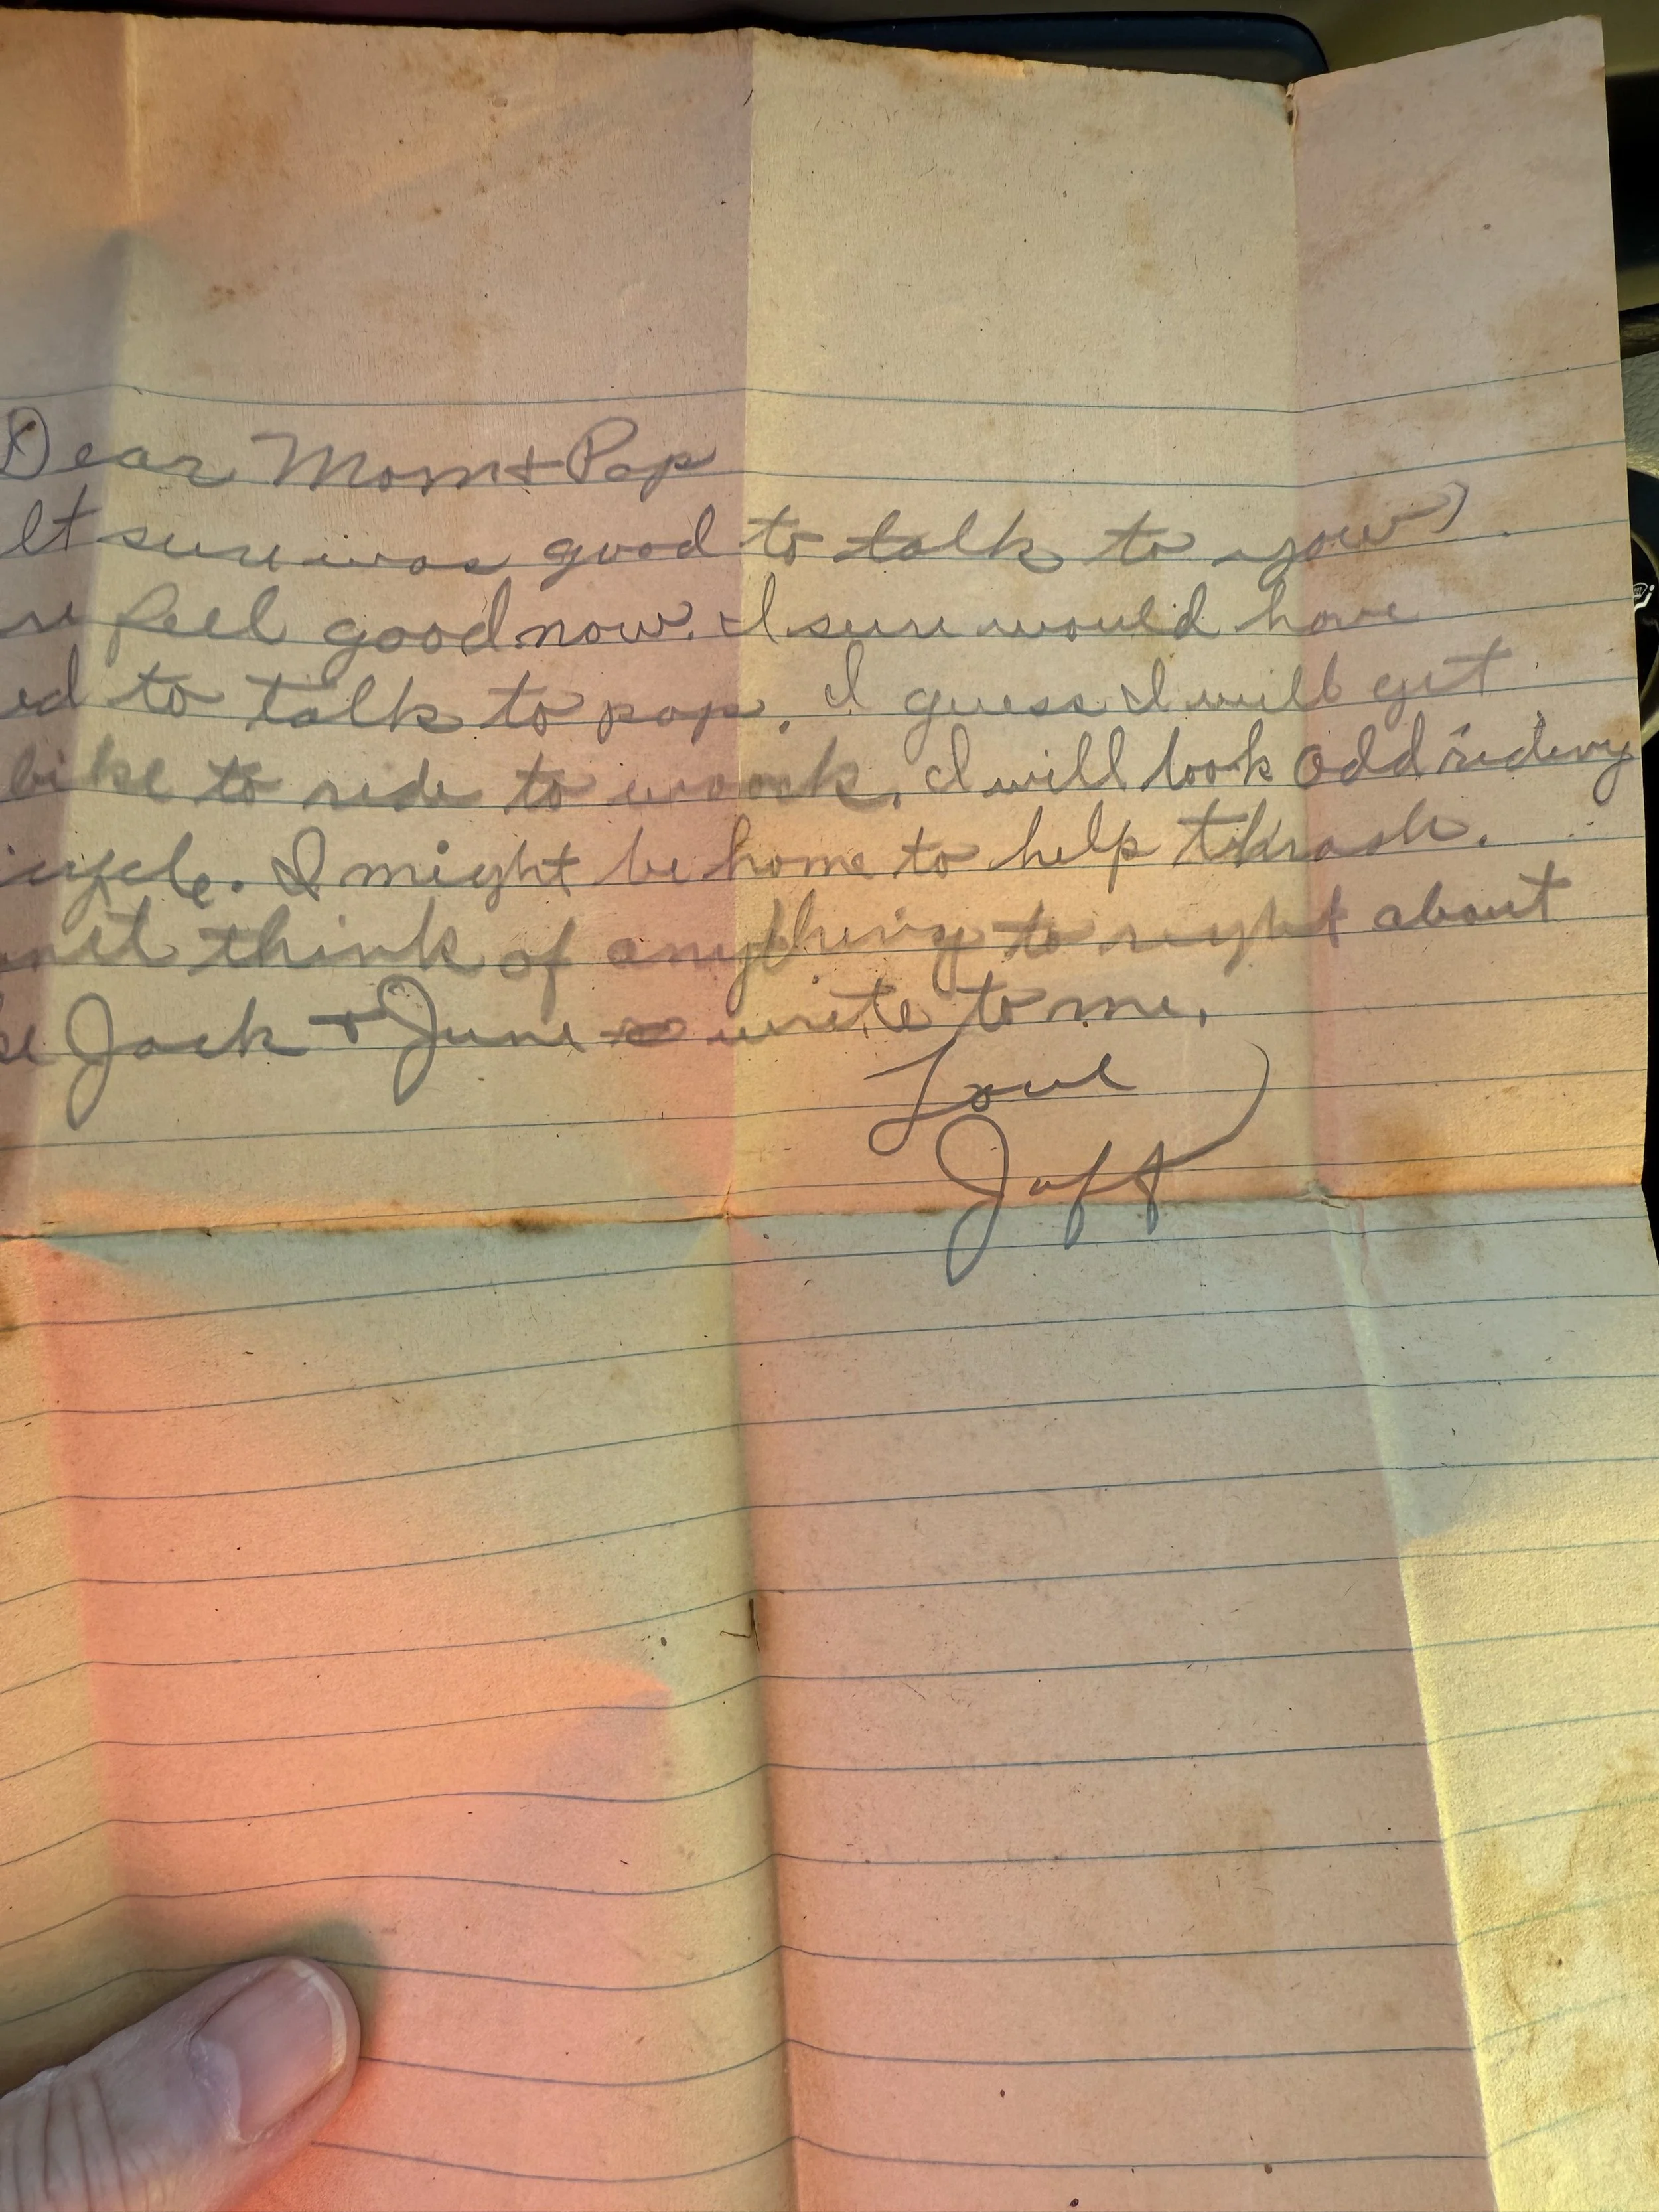 Dear Mom + Pop
It sure was good to talk to you
re feel good now. I sure would have
ed to talk to pop. I guess I will get
bike to ride to woork. I will look odd rideing
cycle. I might be home to help thrash.
think of anything to right about
se Jack + June write to me.
Love